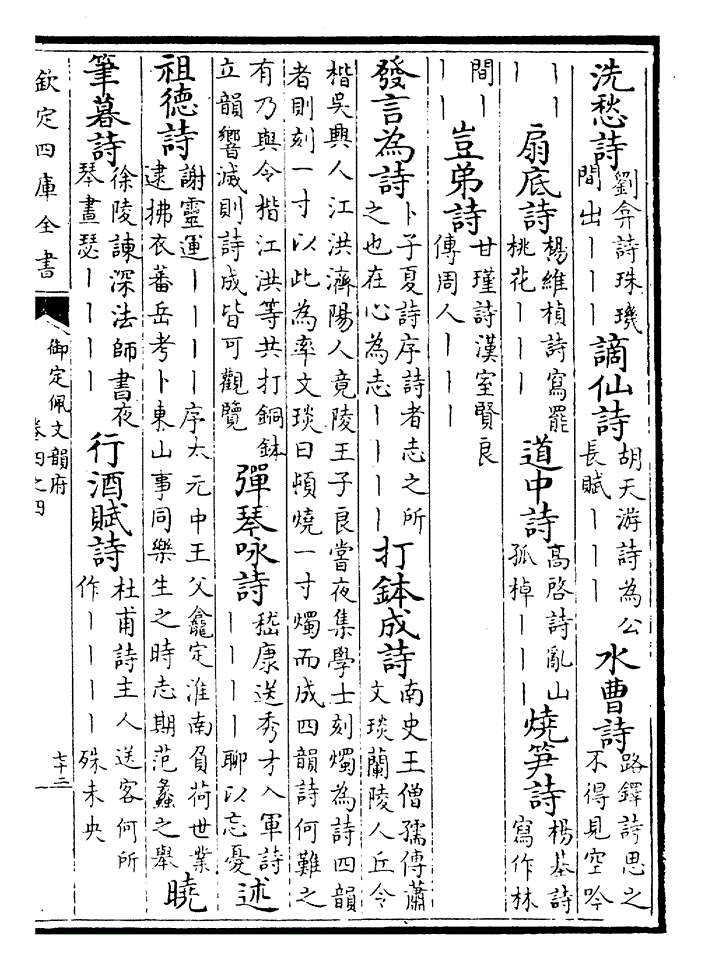 洗愁詩劉弇詩珠璣間出丨丨丨謫仙詩胡天游詩為公長賦丨丨丨水曹詩路鐸詩思之不得見空吟
丨丨丨扇底詩楊維楨詩寫罷桃花丨丨丨道中詩高啓詩亂山孤棹丨丨丨燒筍詩楊基詩寫作林
間丨丨丨豈弟詩甘瑾詩漢室賢良傳周人丨丨丨
發言為詩卜子夏詩序詩者志之所之也在心為志丨丨丨丨打鉢成詩南史王僧孺傳蕭文琰蘭陵人丘令
楷吳興人江洪濟陽人竟陵王子良嘗夜集學士刻燭為詩四韻者則刻一寸以此為率文琰曰頓燒一寸燭而成四韻詩何難之
有乃與令楷江洪等共打銅鉢立韻響滅則詩成皆可觀覽彈琴咏詩嵇康送秀才入軍詩丨丨丨丨聊以忘憂述
祖德詩謝靈運丨丨丨丨序太元中王父龕定淮南負荷世業逮拂衣蕃岳考卜東山事同樂生之時志期范蠡之舉曉
筆暮詩徐陵諫深法師書夜琴晝瑟丨丨丨丨行酒賦詩杜甫詩主人送客何所作丨丨丨丨殊未央
欽定四庫全書
御定佩文韻府
卷四之四
七十二